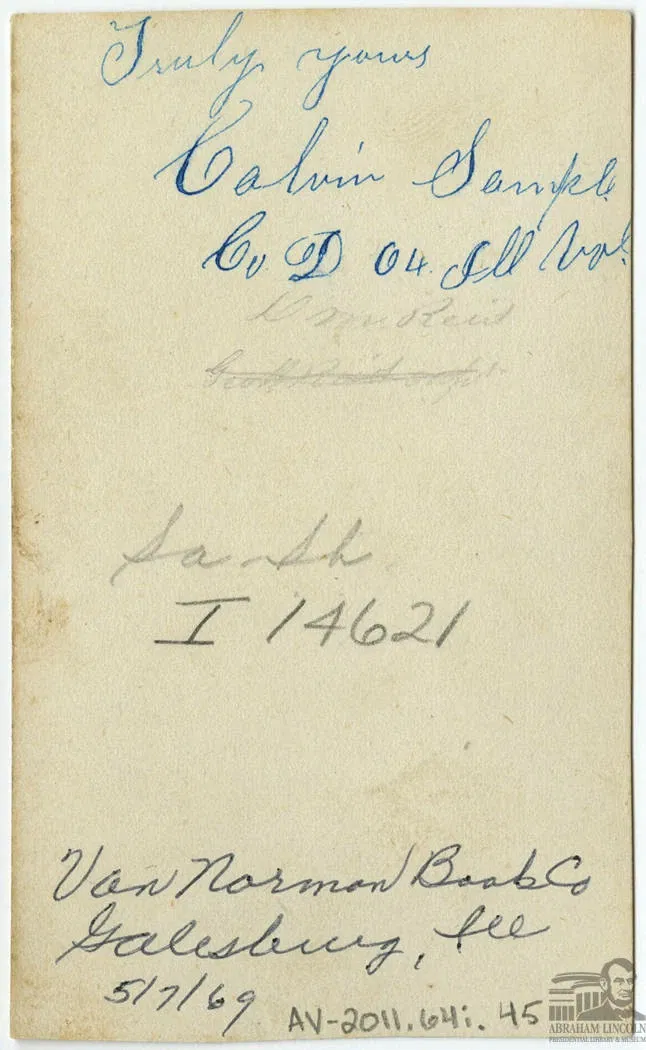 Truly yours
Calvin Sample
Co D 64. Ill Vol.
D M. Reid
Sa-Sh
I 14621
Van Norman Book Co
Galesburg, Ill
5/7/69
AV-2011.64i.45
ABRAHAM LINCOLN
PRESIDENTIAL LIBRARY & MUSEUM